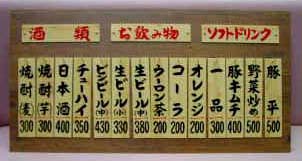 酒類
お飲み物
ソフトドリンク
焼酎(麦) 300
焼酎(芋) 300
日本酒 400
チューハイ 350
ビンビール(中) 430
生ビール(小) 330
生ビール(中) 380
ウーロン茶 200
コーラ 200
オレンジ 200
一品 300
豚キムチ 400
野菜炒め 500
豚平 500